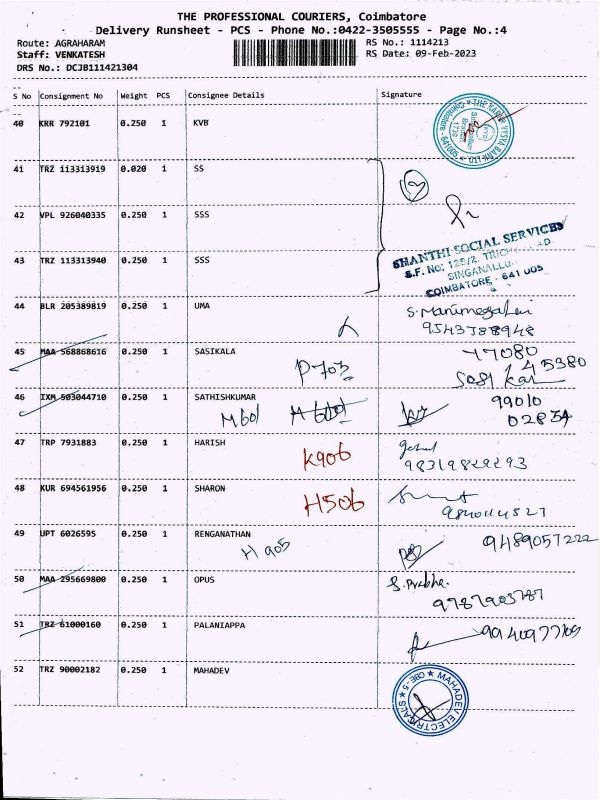 THE PROFESSIONAL COURIERS, Coimbatore
Delivery Runsheet - PCS - Phone No.:0422-3505555 - Page No.:4
Route: AGRAHARAM
RS No.: 1114213
Staff: VENKATESH
RS Date: 09-Feb-2023
DRS No.: DCJB111421304
S No Consignment No Weight PCS Consignee Details Signature
40 KRR 792101 0.250 1 KVB
THE KARUR VYSYA BANK LTD.
Coimbatore - 641005
41 TRZ 113313919 0.020 1 SS
42 VPL 926040335 0.250 1 SSS
43 TRZ 113313940 0.250 1 SSS
SHANTHI SOCIAL SERVICES
S.F. No: 125/2, TRICHY ROAD
SINGANALLUR
COIMBATORE - 641 005
44 BLR 205389819 0.250 1 UMA
S. Manimegalai
9543788948
45 MAA 568868616 0.250 1 SASIKALA
P703
77080
45380
Sasi Kar
46 IXM 503044710 0.250 1 SATHISHKUMAR
M601
99010
02854
47 TRP 7931883 0.250 1 HARISH
K906
98319829293
48 KUR 694561956 0.250 1 SHARON
H506
49 UPT 6026595 0.250 1 RENGANATHAN
H 905
9489057222
50 MAA 295669800 0.250 1 OPUS
S. Prabha.
9787903787
51 TRZ 61000160 0.250 1 PALANIAPPA
9940977109
52 TRZ 90002182 0.250 1 MAHADEV
MAHADEV ELECTRICALS
CBE - 5